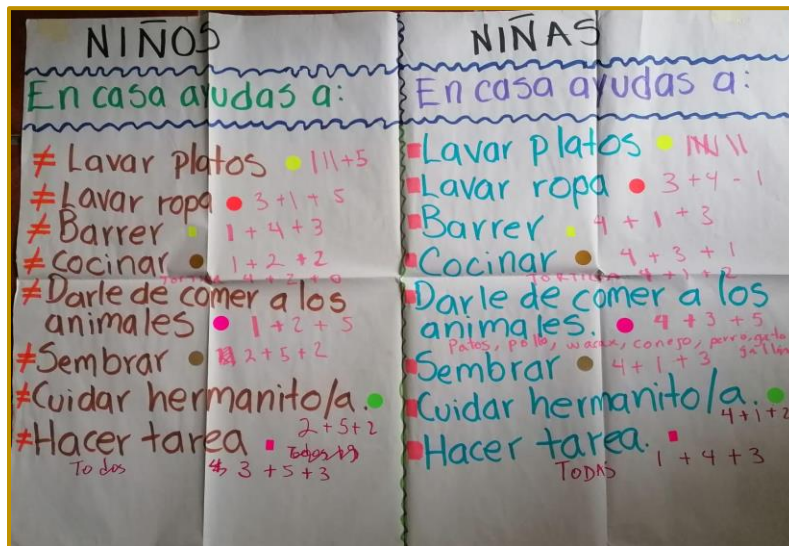 NIÑOS
En casa ayudas a:
≠ Lavar platos ||| + 5
≠ Lavar ropa 3 + 1 + 5
≠ Barrer 1 + 4 + 3
≠ cocinar 1 + 2 + 2
4 + 2 + 0
≠ Darle de comer a los
animales 1 + 2 + 5
≠ Sembrar 2 + 5 + 2
≠ Cuidar hermanito/a.
2 + 5 + 2
≠ Hacer tarea Todos
Todos 3 + 5 + 3
NIÑAS
En casa ayudas a:
Lavar platos
Lavar ropa 3 + 4 - 1
Barrer 4 + 1 + 3
Cocinar 4 + 3 + 1
TORTILLA 4 + 1 + 2
Darle de comer a los
animales. 4 + 3 + 5
Patos, pollo, wacax, conejo, perro, gato
gallina
Sembrar 4 + 1 + 3
Cuidar hermanito/a.
4 + 1 + 2
Hacer tarea.
TODAS 1 + 4 + 3